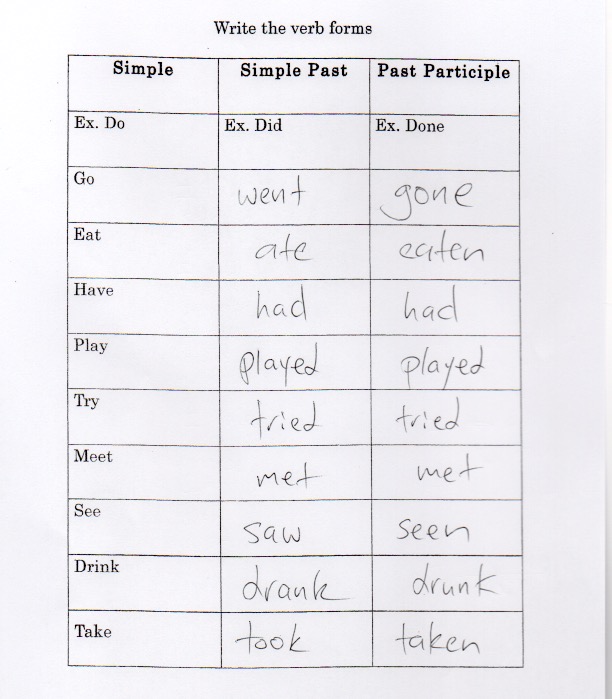 Write the verb forms
Simple Simple Past Past Participle
Ex. Do Ex. Did Ex. Done
Go went gone
Eat ate eaten
Have had had
Play played played
Try tried tried
Meet met met
See saw seen
Drink drank drunk
Take took taken